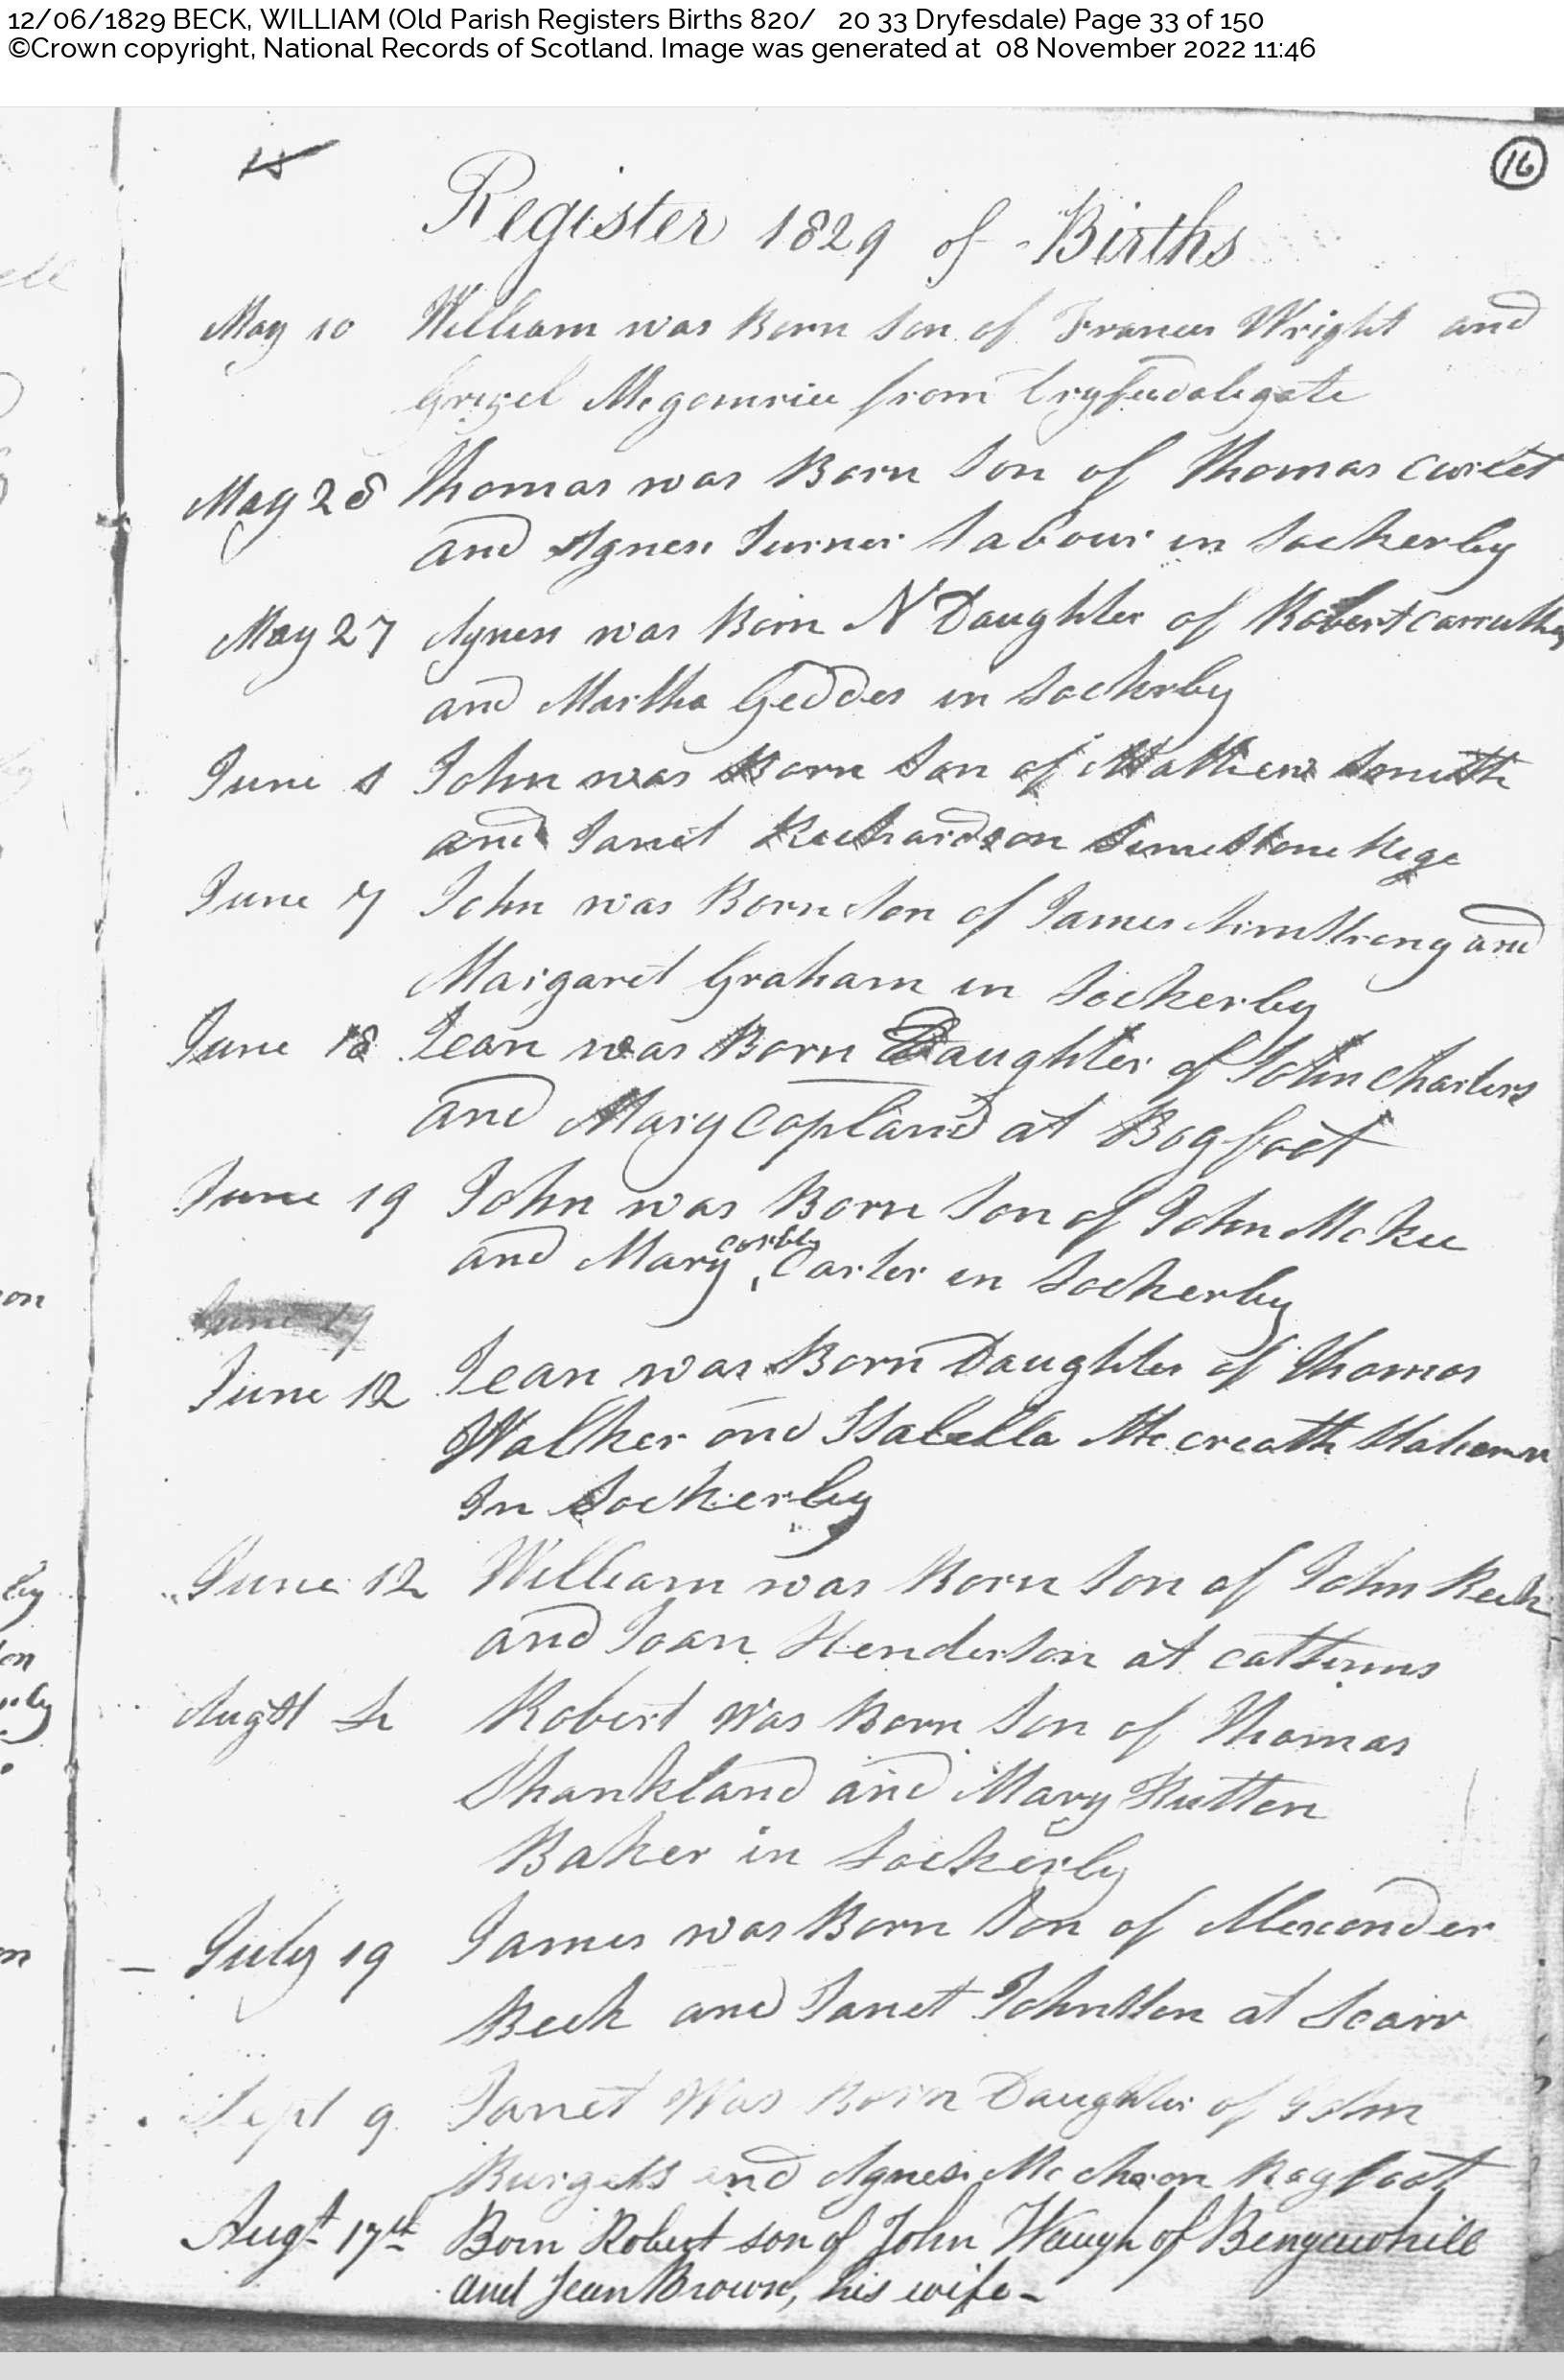 12/06/1829 BECK, WILLIAM (Old Parish Registers Births 820/ 20 33 Dryfesdale) Page 33 of 150
©Crown copyright, National Records of Scotland. Image was generated at 08 November 2022 11:46
16
Register 1829 of Births
May 10 William was Born Son of Frances Wright and
Grizel from Dryfesdalegate
May 28 Thomas was Born Son of Thomas
and Agness Turner Labour in Lockerby
May 27 Agness was Born N Daughter of Robert Carruthers
and Martha Geddes in Lockerby
June John was Born Son of Mathew Smith
and Janet Richardson
June 7 John was Born Son of James Armstrong and
Margaret Graham in Lockerby
June 18 Jean was Born Daughter of John Charters
and Mary Copland at Bogfoot
June 19 John was Born Son of John McKee
corbly
and Mary Carter in Lockerby
June 19
June 12 Jean was Born Daughter of Thomas
Walker and Isabella Mccreath
In Lockerby
June 12 William was Born Son of John Beck
and Joan Henderson at
Augst Robert Was Born Son of Thomas
Shankland and Mary Hutton
Baker in Lockerby
July 19 James was Born Son of Alexander
Beck and Janet Johnston at Scarr
Sept 9 Janet Was Born Daughter of John
Burgess and Agness Bogfoot
Augt 17th Born Robert son of John Waugh of Bengawhill
and Jean Brown, his wife -